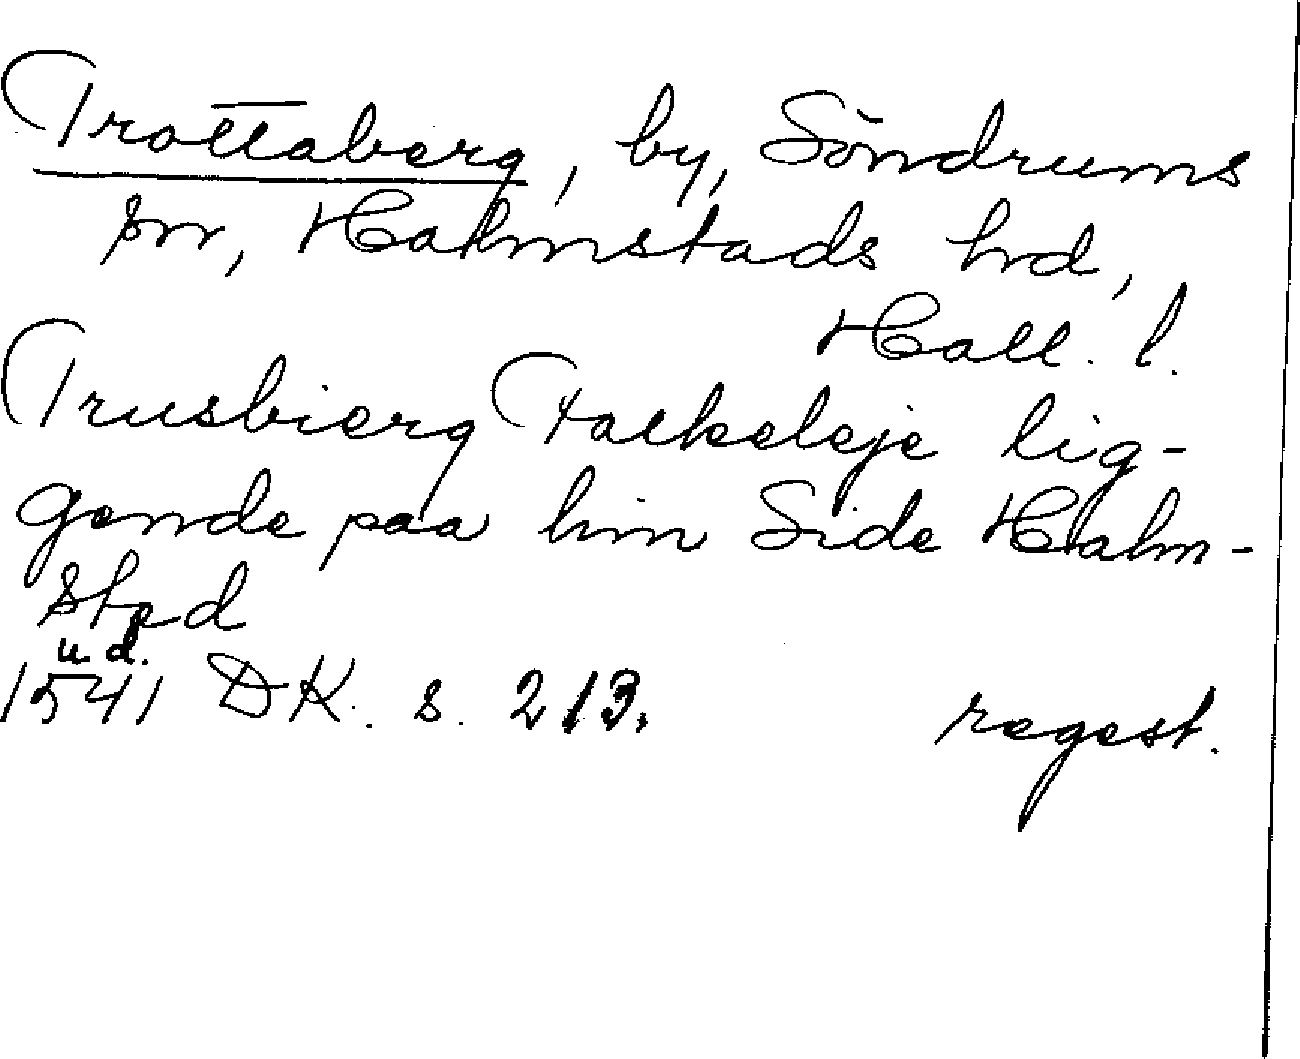 Trottaberg, by, Söndrums
sn, Halmstads hrd,
Hall. l.
Trusbierg Falkeleje lig-
gende paa hin Side Halm-
sted
u. d.
1541 DK. s. 213. regest.